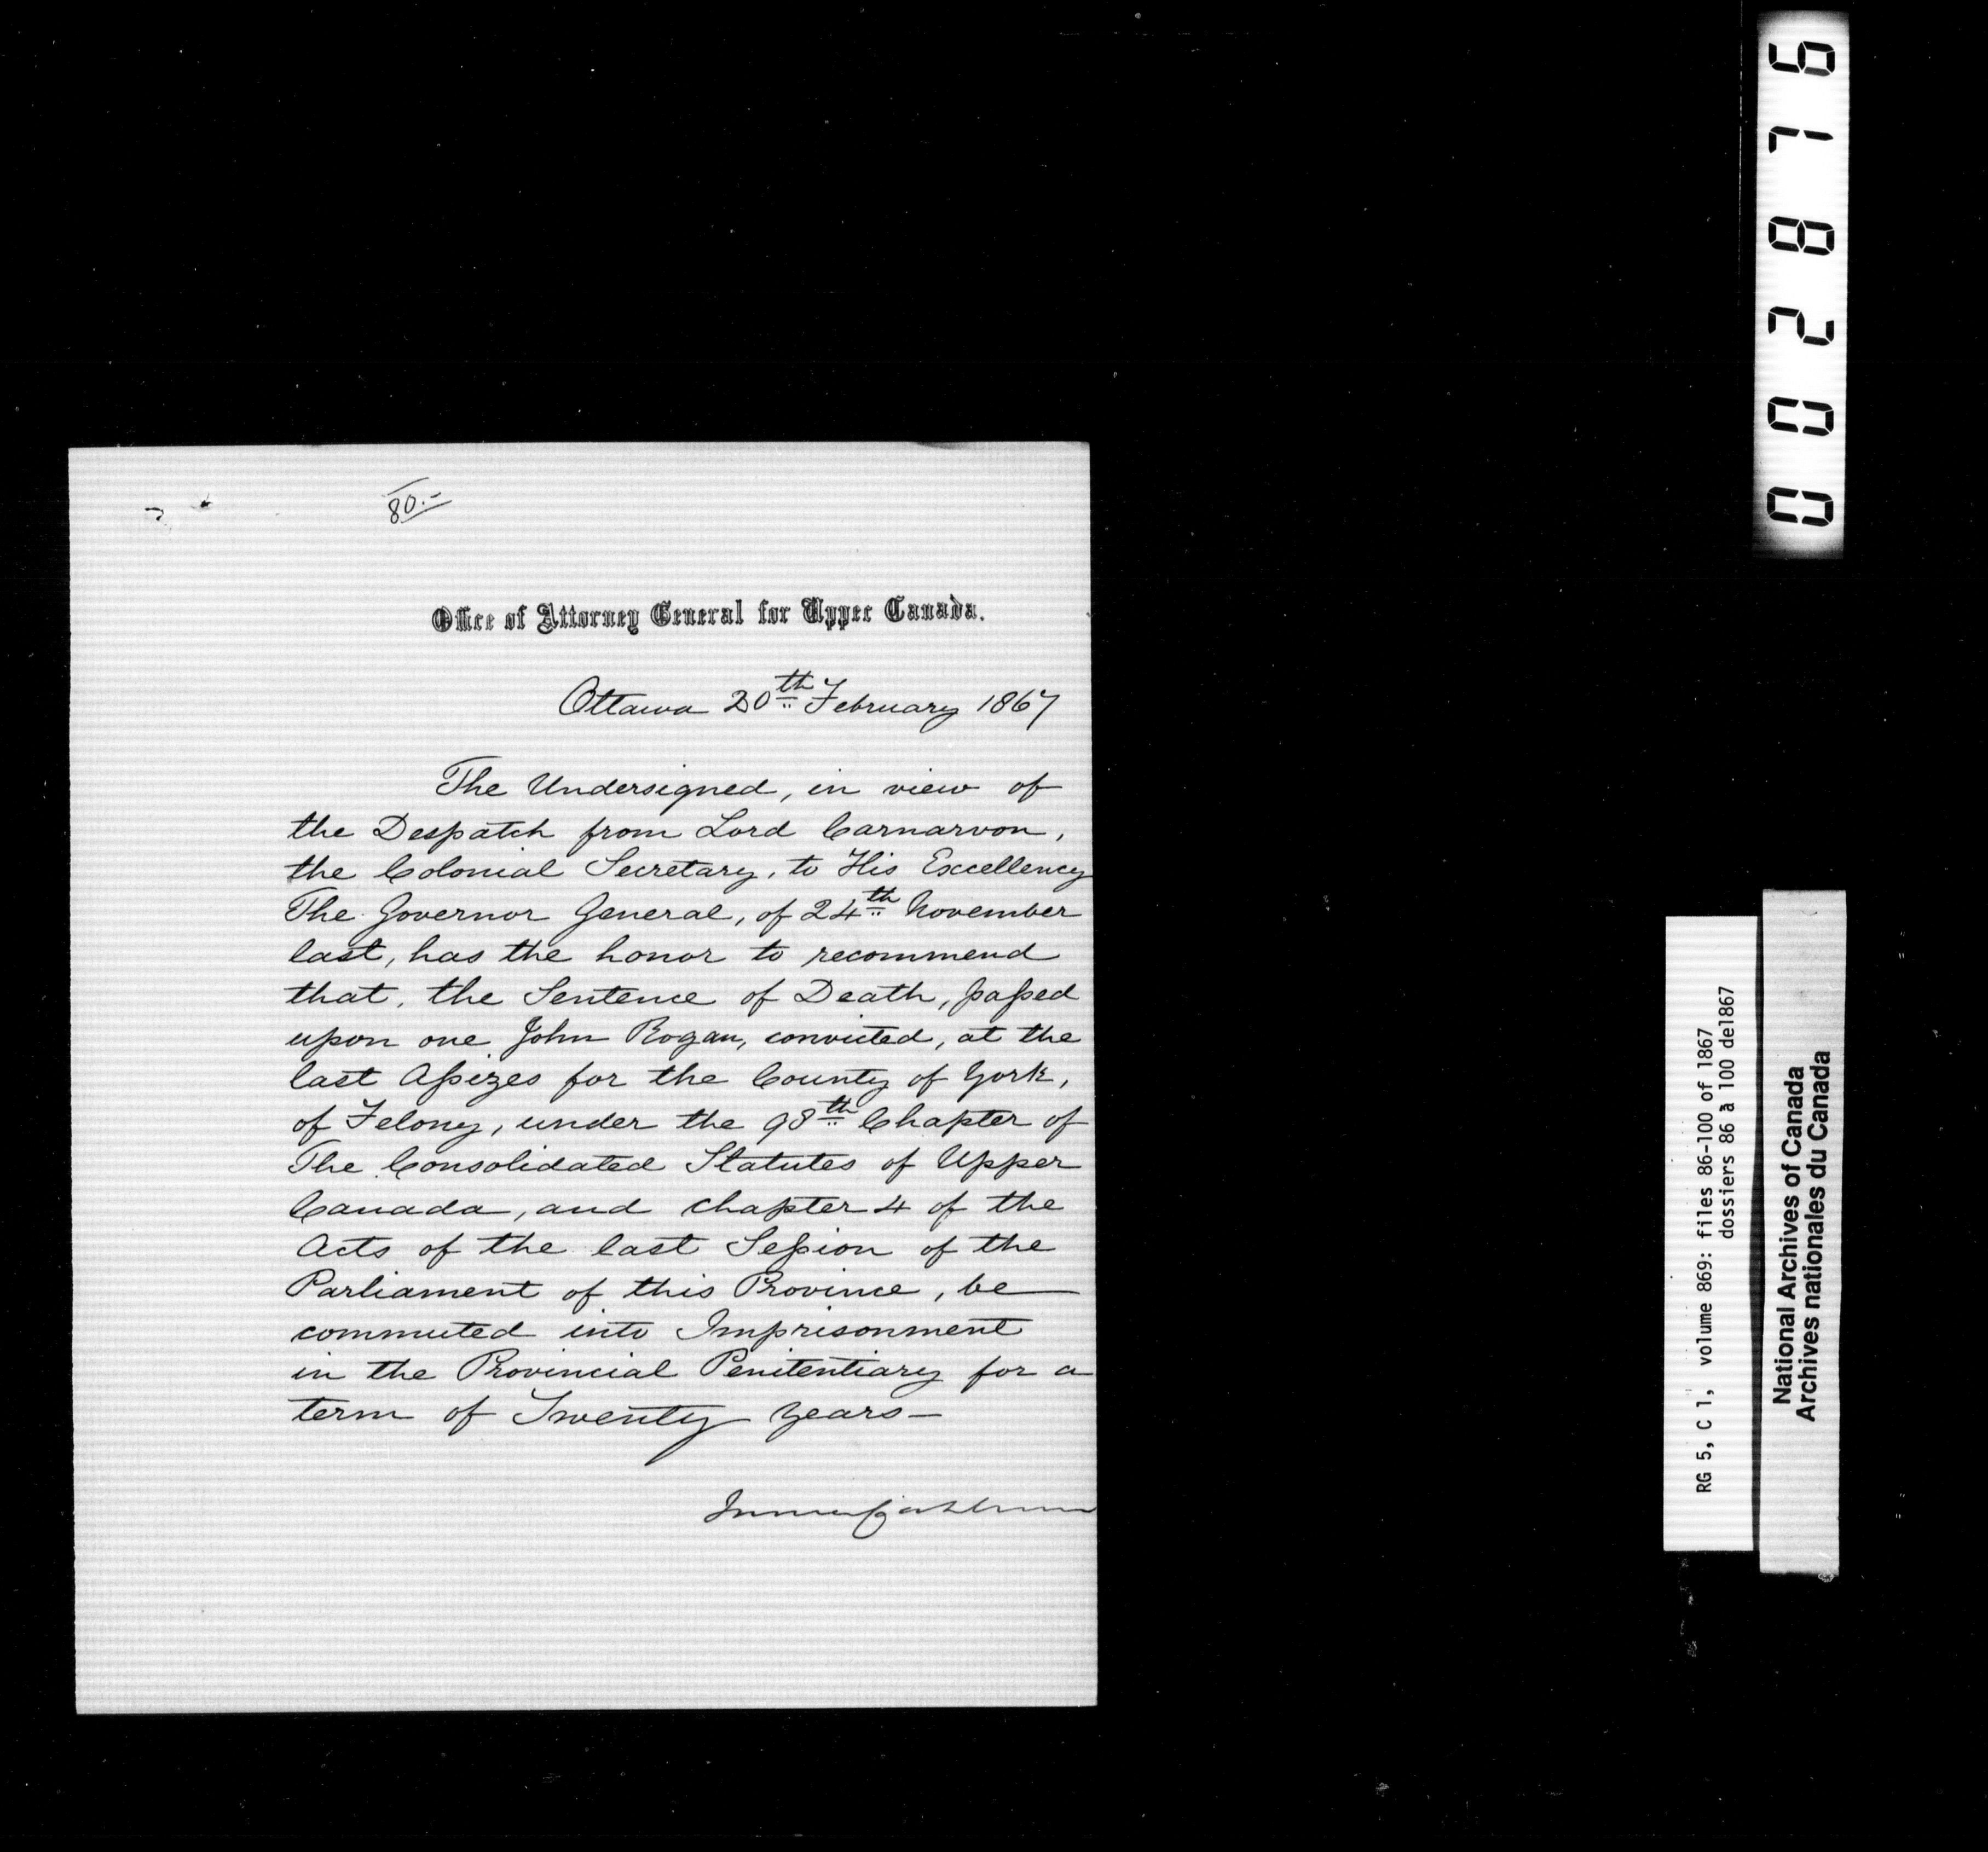 80.-
Office of Attorney General for Upper Canada.
Ottawa 20th February 1867
The Undersigned, in view of
the Despatch from Lord Carnarvon,
the Colonial Secretary, to His Excellency
The Governor General, of 24th November
last, has the honor to recommend
that, the Sentence of Death, passed
upon one John Rogan, convicted, at the
last Assizes for the County of York,
of Felony, under the 98th Chapter of
The Consolidated Statutes of Upper
Canada, and chapter 4 of the
Acts of the last Session of the
Parliament of this Province, be
commuted into Imprisonment
in the Provincial Penitentiary for a
term of Twenty years—
002876
RG 5, C 1, volume 869: files 86-100 of 1867
dossiers 86 à 100 de1867
National Archives of Canada
Archives nationales du Canada